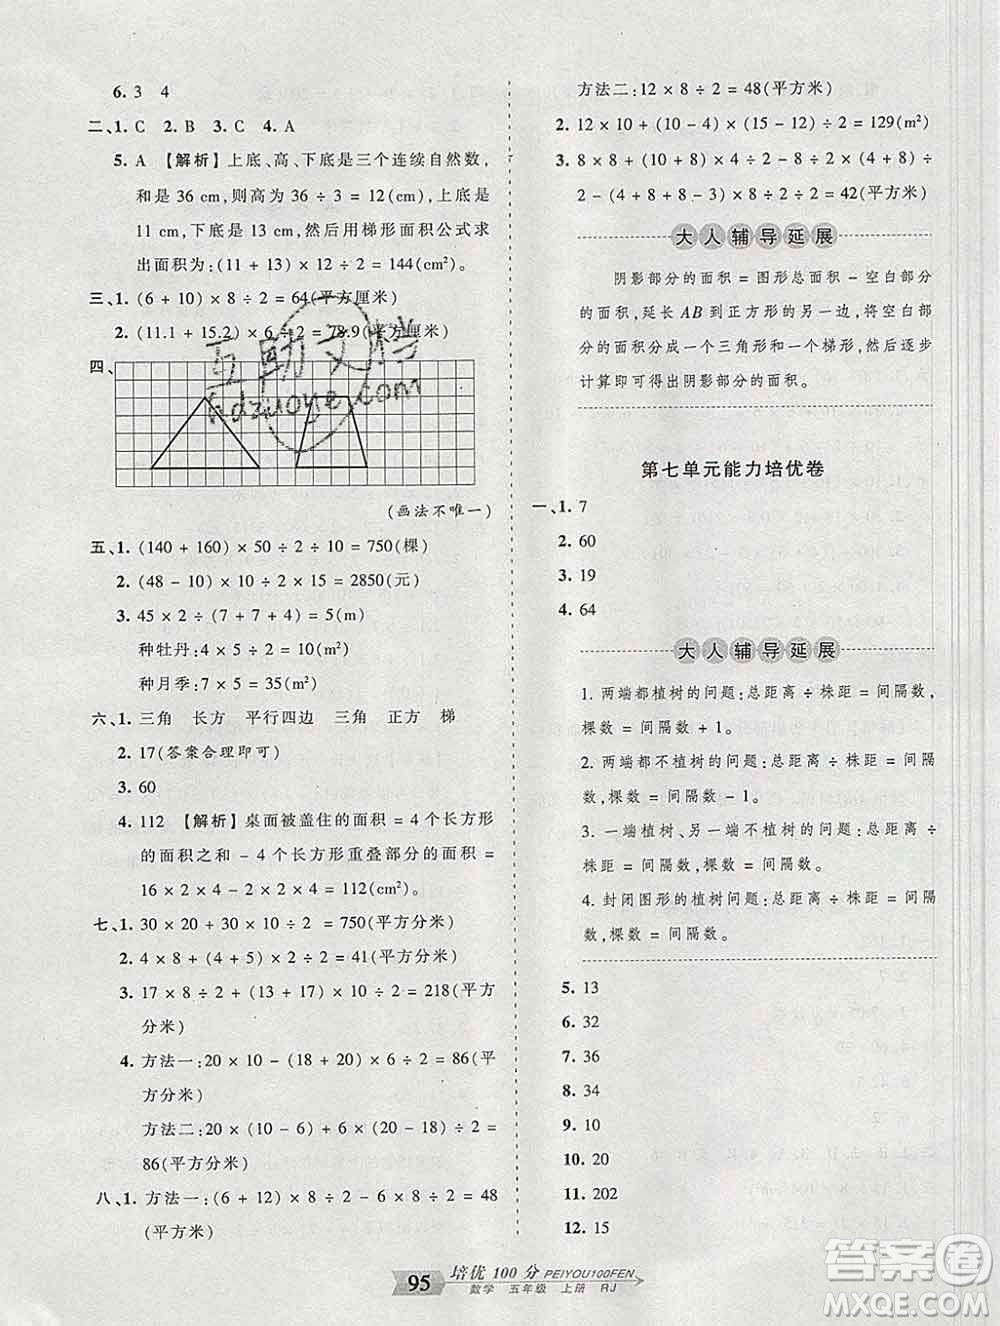 6. 3　4
二、1. C　2. B　3. C　4. A
5. A　【解析】上底、高、下底是三个连续自然数，
和是 36 cm，则高为 36 ÷ 3 = 12(cm)，上底是
11 cm，下底是 13 cm，然后用梯形面积公式求
出面积为：(11 + 13) × 12 ÷ 2 = 144(cm²)。
三、1. (6 + 10) × 8 ÷ 2 = 64(平方厘米)
2. (11.1 + 15.2) × 6 ÷ 2 = 78.9(平方厘米)
四、
(画法不唯一)
五、1. (140 + 160) × 50 ÷ 2 ÷ 10 = 750(棵)
2. (48 - 10) × 10 ÷ 2 × 15 = 2850(元)
3. 45 × 2 ÷ (7 + 7 + 4) = 5(m)
种牡丹：4 × 5 ÷ 2 = 10(m²)
种月季：7 × 5 = 35(m²)
六、1. 三角　长方　平行四边　三角　正方　梯
2. 17(答案合理即可)
3. 60
4. 112　【解析】桌面被盖住的面积 = 4 个长方形
的面积之和 - 4 个长方形重叠部分的面积 =
16 × 2 × 4 - 2 × 2 × 4 = 112(cm²)。
七、1. 30 × 20 + 30 × 10 ÷ 2 = 750(平方分米)
2. 4 × 8 + (4 + 5) × 2 ÷ 2 = 41(平方分米)
3. 17 × 8 ÷ 2 + (13 + 17) × 10 ÷ 2 = 218(平方
分米)
4. 方法一：20 × 10 - (18 + 20) × 6 ÷ 2 = 86(平方
分米)
方法二：20 × 4 + (20 - 4 + 20 - 18) × 6 ÷ 2 =
86(平方分米)
八、1. 方法一：(6 + 12) × 8 ÷ 2 - 6 × 8 ÷ 2 = 48
(平方米)
方法二：12 × 8 ÷ 2 = 48(平方米)
2. 12 × 10 + (10 - 4) × (15 - 12) ÷ 2 = 129(m²)
3. 8 × 8 + (4 + 8) × 4 ÷ 2 - 8 × (4 + 8) ÷
2 - (4 + 8 + 8 - 3) × 4 ÷ 2 = 42(平方米)
大人辅导延展
阴影部分的面积 = 图形总面积 - 空白部分的
面积，延长 AB 到正方形的另一边，将空白部分
的面积分成一个三角形和一个梯形，然后逐步
计算即可得出阴影部分的面积。
第七单元能力培优卷
一、1. 7
2. 60
3. 19
4. 64
大人辅导延展
1. 两端都植树的问题：总距离 ÷ 株距 = 间隔数，
棵数 = 间隔数 + 1。
2. 两端都不植树的问题：总距离 ÷ 株距 = 间隔
数，棵数 = 间隔数 - 1。
3. 一端植树、另一端不植树的问题：总距离 ÷
株距 = 间隔数，棵数 = 间隔数。
4. 封闭图形的植树问题：总距离 ÷ 株距 = 间隔
数，棵数 = 间隔数。
5. 13
6. 32
7. 36
8. 34
9. 10
10. 20
11. 202
12. 15
95 培优 100 分 PEIYOU100FEN
数学　五年级　上册　RJ
互动文档
hdzuoye.com
答案圈
MXQE.COM